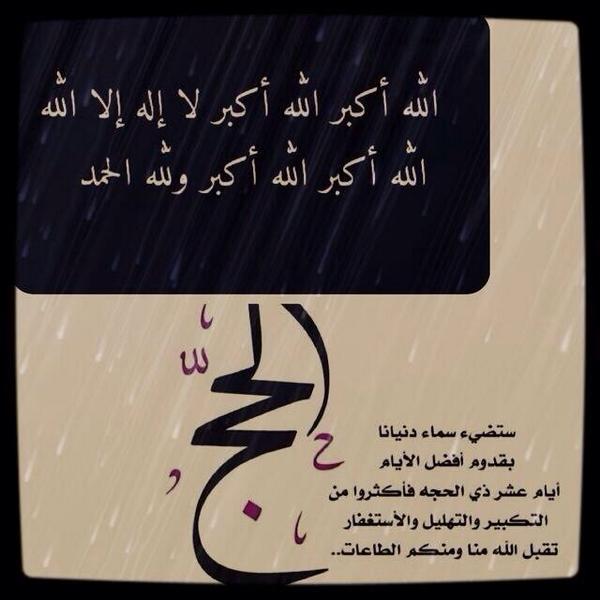 الله أكبر الله أكبر لا إله إلا الله
الله أكبر الله أكبر ولله الحمد
الحج
ستضيء سماء دنيانا
بقدوم أفضل الأيام
أيام عشر ذي الحجه فأكثروا من
التكبير والتهليل والأستغفار
تقبل الله منا ومنكم الطاعات..